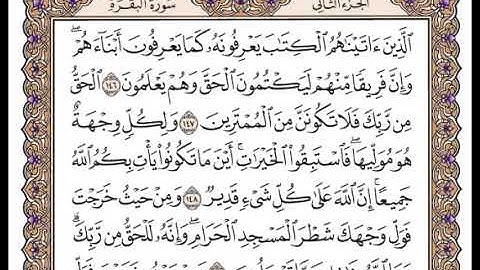 سورة البقرة الجزء الثاني
ٱلَّذِينَ ءَاتَيۡنَٰهُمُ ٱلۡكِتَٰبَ يَعۡرِفُونَهُۥ كَمَا يَعۡرِفُونَ أَبۡنَآءَهُمۡۖ
وَإِنَّ فَرِيقٗا مِّنۡهُمۡ لَيَكۡتُمُونَ ٱلۡحَقَّ وَهُمۡ يَعۡلَمُونَ ١٤٦ ٱلۡحَقُّ
مِن رَّبِّكَ فَلَا تَكُونَنَّ مِنَ ٱلۡمُمۡتَرِينَ ١٤٧ وَلِكُلّٖ وِجۡهَةٌ
هُوَ مُوَلِّيهَاۖ فَٱسۡتَبِقُواْ ٱلۡخَيۡرَٰتِۚ أَيۡنَ مَا تَكُونُواْ يَأۡتِ بِكُمُ ٱللَّهُ
جَمِيعًاۚ إِنَّ ٱللَّهَ عَلَىٰ كُلِّ شَيۡءٖ قَدِيرٞ ١٤٨ وَمِنۡ حَيۡثُ خَرَجۡتَ
فَوَلِّ وَجۡهَكَ شَطۡرَ ٱلۡمَسۡجِدِ ٱلۡحَرَامِۖ وَإِنَّهُۥ لَلۡحَقُّ مِن رَّبِّكَۗ